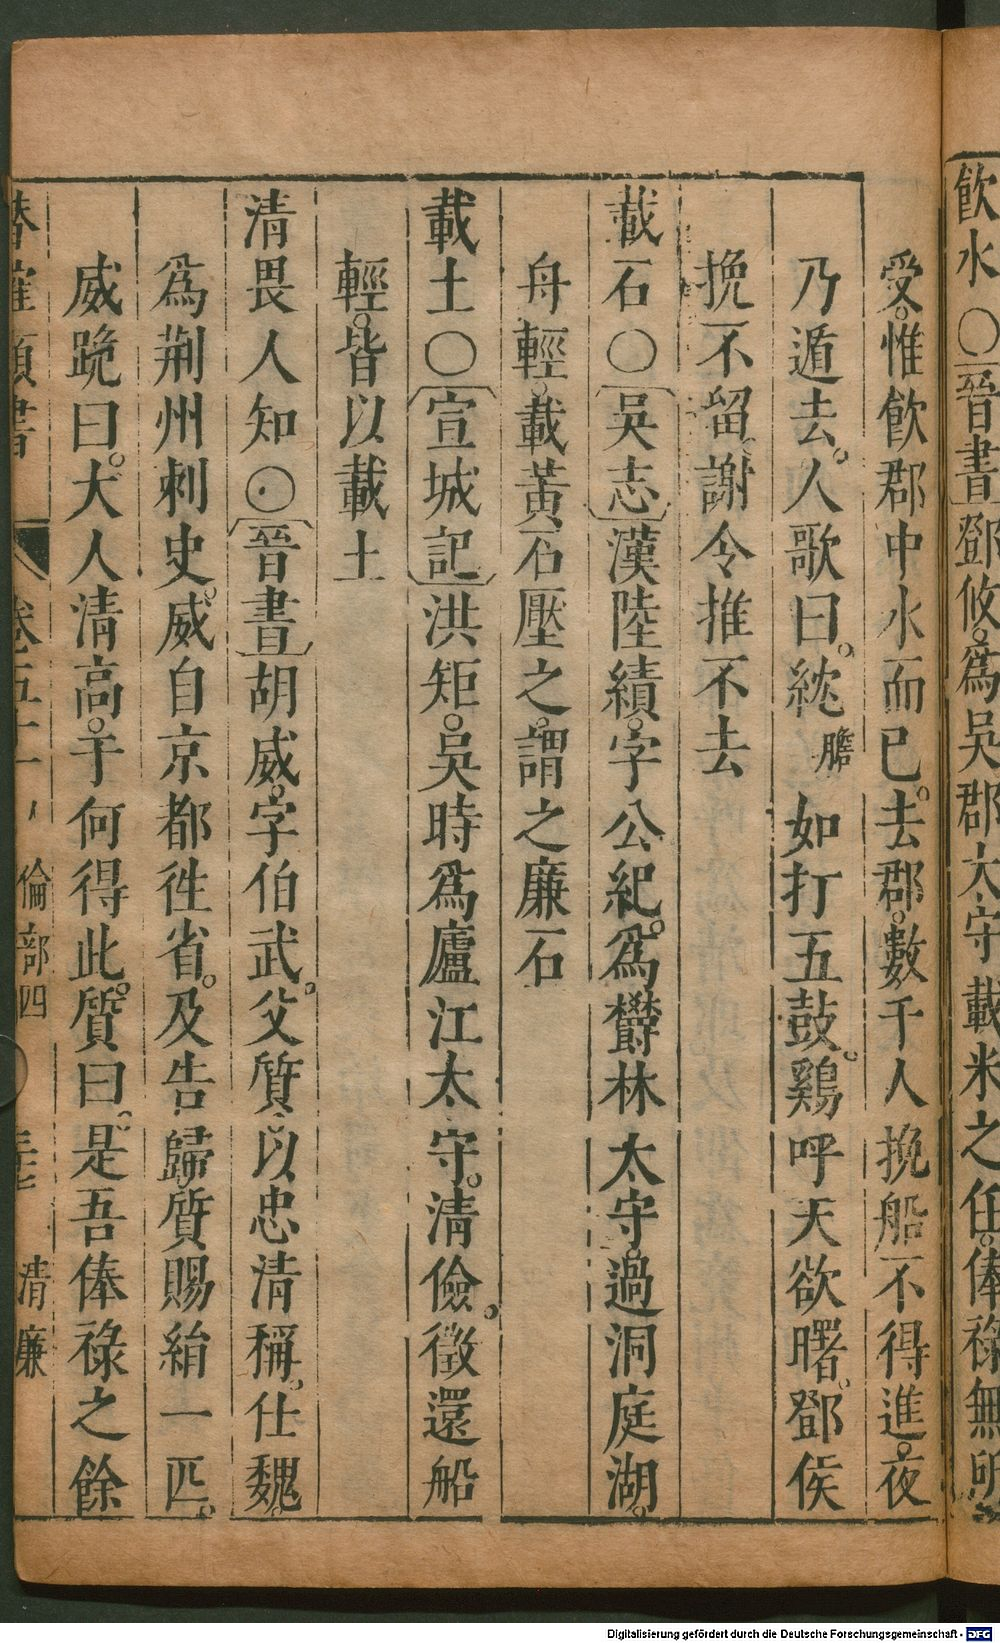 飲水○晉書鄧攸爲吳郡太守載米之任俸祿無所
受惟飲郡中水而已去郡數千人挽船不得進夜
乃遁去人歌曰紞膽如打五鼓鷄呼天欲曙鄧侯
挽不留謝令推不去
載石○吳志漢陸績字公紀爲欝林太守過洞庭湖
舟輕載黃石壓之謂之廉石
載土○宣城記洪矩吳時爲廬江太守清儉徵還船
輕皆以載土
清畏人知○晉書胡威字伯武父質以忠清稱仕魏
爲荆州刺史威自京都徃省及告歸質賜絹一匹
威跪曰大人清高于何得此質曰是吾俸祿之餘
類書 卷五十 倫部四 清廉
Digitalisierung gefördert durch die Deutsche Forschungsgemeinschaft - DFG